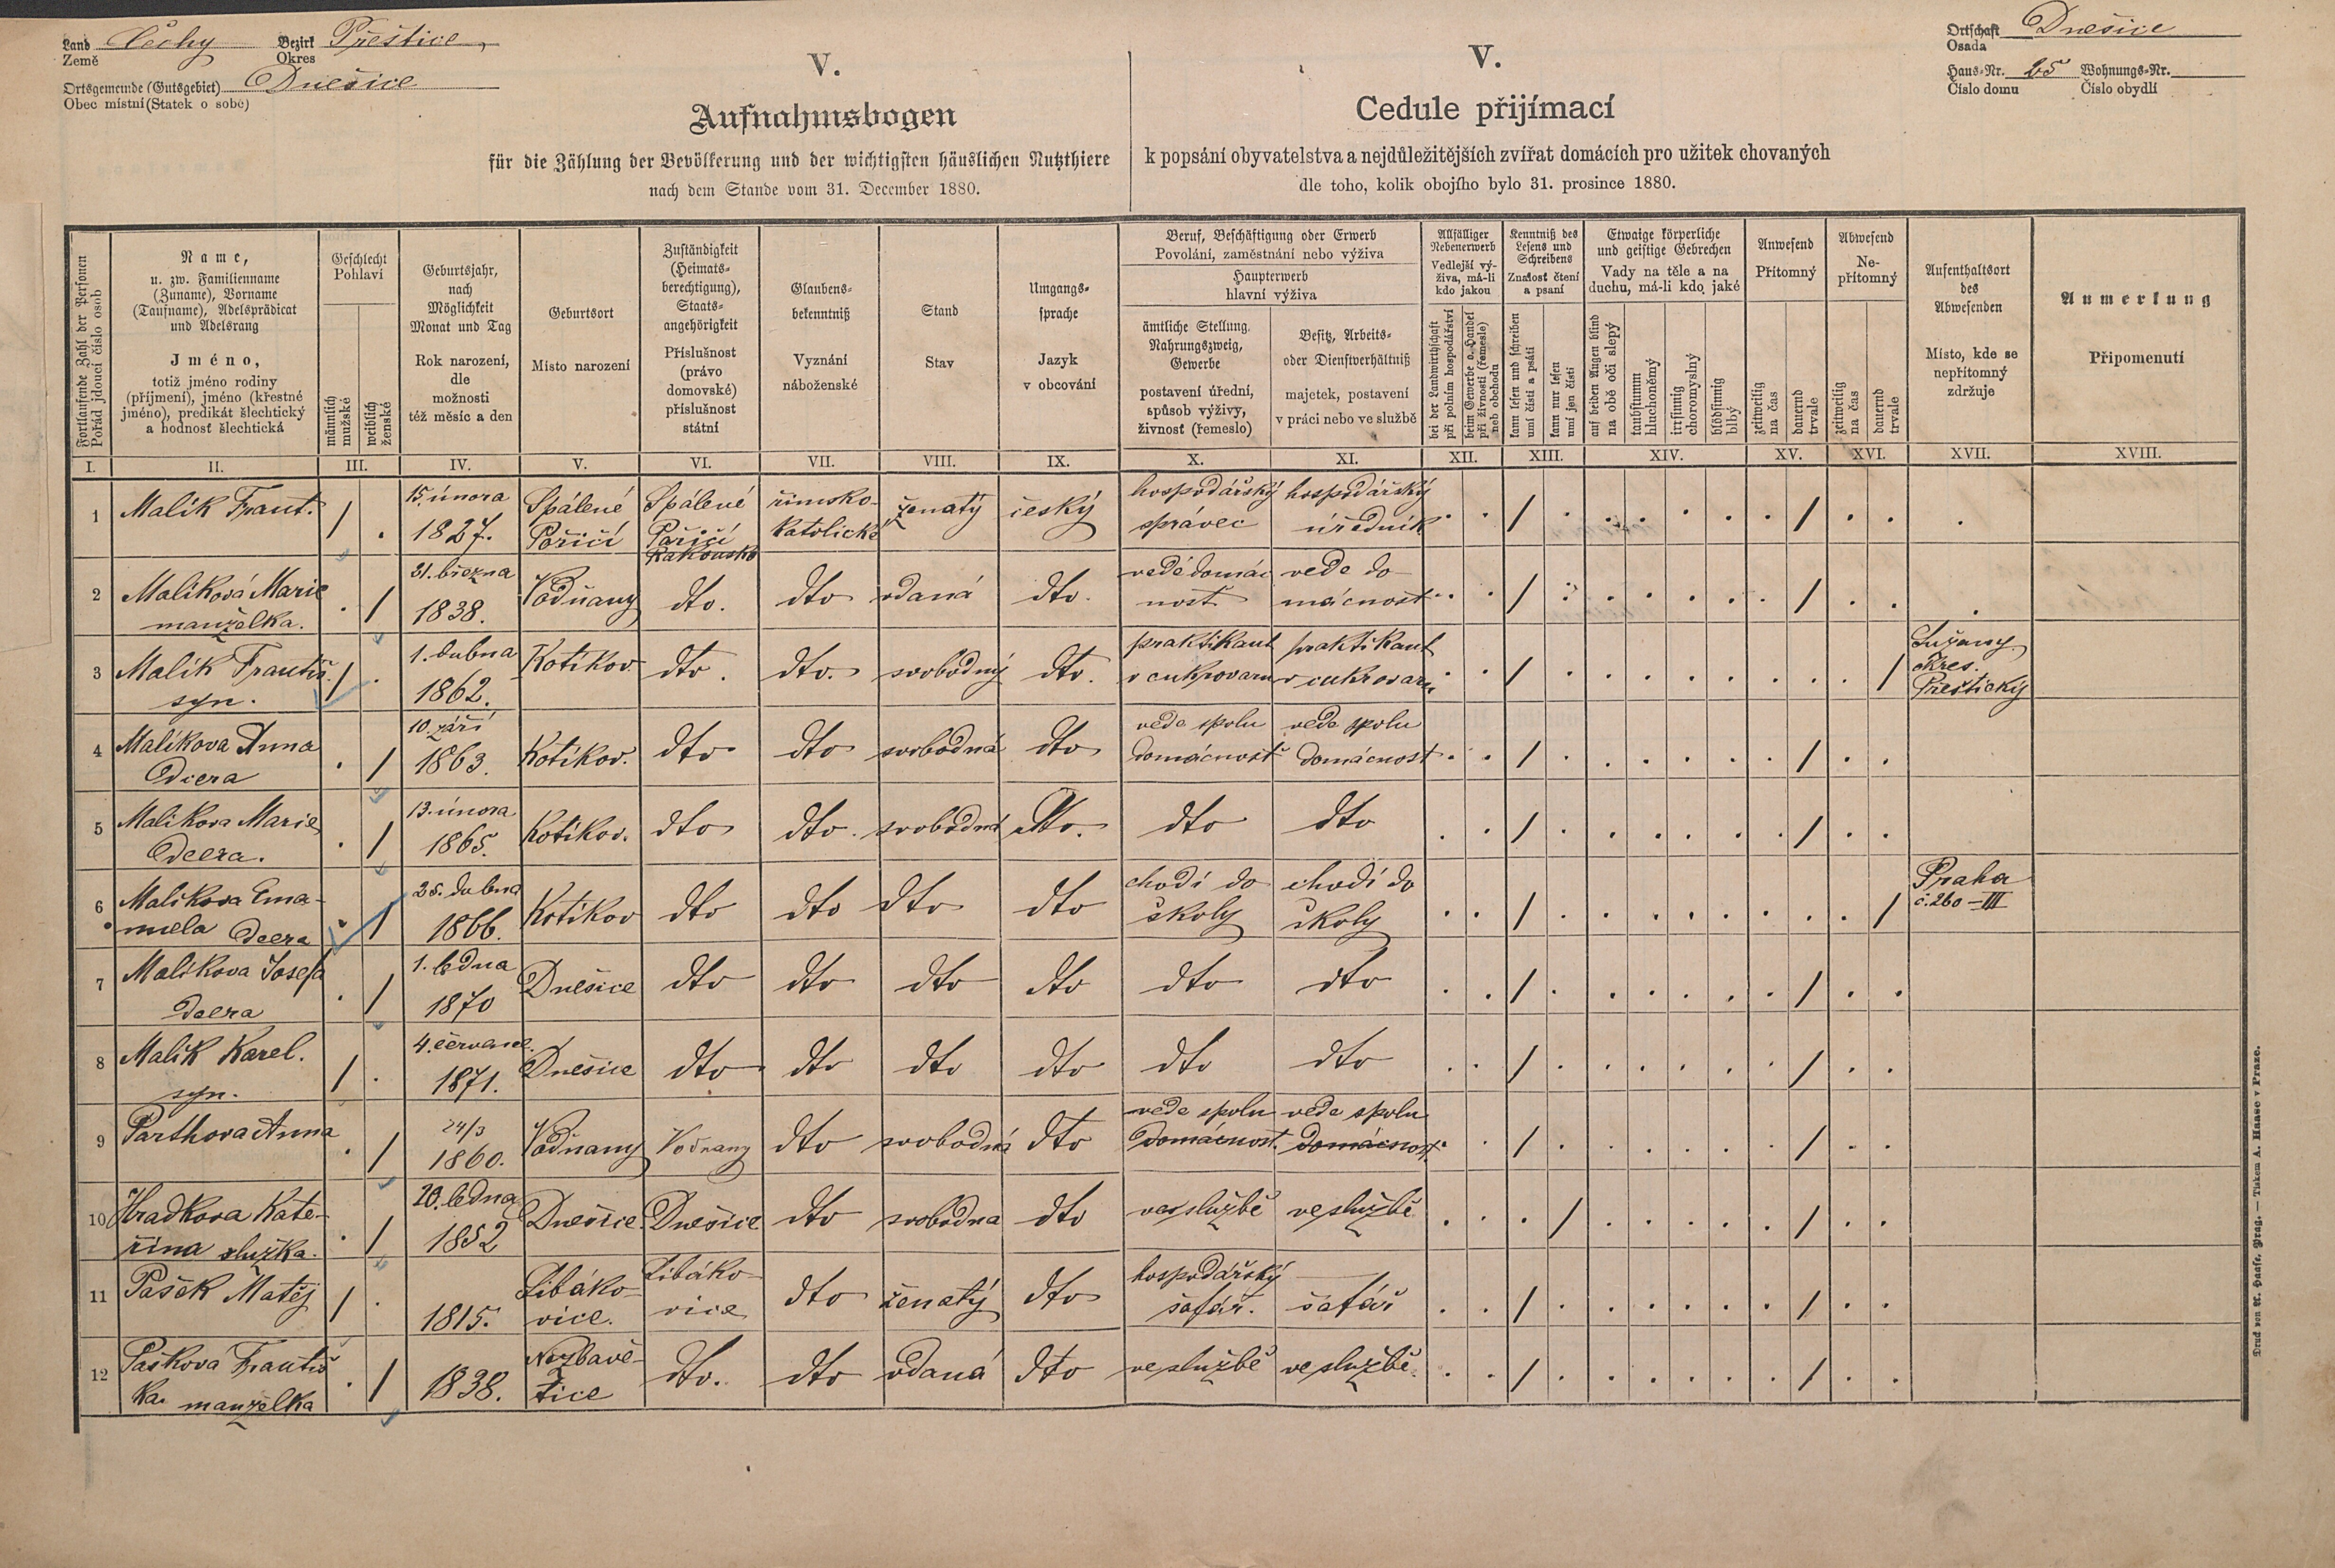 Land Čechy Bezirk Přeštice,
Země Okres
Ortsgemeinde (Gutsgebiet) Dnešice
Obec místní (Statek o sobě)
Ortschaft Dnešice
Osada
Haus-Nr. 25 Wohnungs-Nr.
Číslo domu Číslo obydlí
V.
Aufnahmsbogen
für die Zählung der Bevölkerung und der wichtigsten häuslichen Nutzthiere
nach dem Stande vom 31. December 1880.
V.
Cedule přijímací
k popsání obyvatelstva a nejdůležitějších zvířat domácích pro užitek chovaných
dle toho, kolik obojího bylo 31. prosince 1880.
Fortlaufende Zahl der Personen
Pořád jdoucí číslo osob
Name,
u. zw. Familienname
(Zuname), Vorname
(Taufname), Adelsprädicat
und Adelsrang
Jméno,
totiž jméno rodiny
(příjmení), jméno (křestné
jméno), predikát šlechtický
a hodnosť šlechtická
Geschlecht
Pohlaví
männlich
mužské
weiblich
ženské
Geburtsjahr,
nach
Möglichkeit
Monat und Tag
Rok narození,
dle
možnosti
též měsíc a den
Geburtsort
Místo narození
Zuständigkeit
(Heimats-
berechtigung),
Staats-
angehörigkeit
Příslušnost
(právo
domovské)
příslušnost
státní
Glaubens-
bekenntniß
Vyznání
náboženské
Stand
Stav
Umgangs-
sprache
Jazyk
v obcování
Beruf, Beschäftigung oder Erwerb
Povolání, zaměstnání nebo výživa
Haupterwerb
hlavní výživa
ämtliche Stellung,
Nahrungszweig,
Gewerbe
postavení úřední,
spůsob výživy,
živnosť (řemeslo)
Besitz, Arbeits-
oder Dienstverhältniß
majetek, postavení
v práci nebo ve službě
Allfälliger
Nebenerwerb
Vedlejší vý-
živa, má-li
kdo jakou
bei der Landwirthschaft
při polním hospodářství
beim Gewerbe o. Handel
při živnosti (řemesle)
neb obchodu
Kenntniß des
Lesens und
Schreibens
Znalost čtení
a psaní
kann lesen und schreiben
umí čísti a psáti
kann nur lesen
umí jen čísti
Etwaige körperliche
und geistige Gebrechen
Vady na těle a na
duchu, má-li kdo jaké
auf beiden Augen blind
na obě oči slepý
taubstumm
hluchoněmý
irrsinnig
choromyslný
blödsinnig
blbý
Anwesend
Přítomný
zeitweilig
na čas
dauernd
trvale
Abwesend
Ne-
přítomný
zeitweilig
na čas
dauernd
trvale
Aufenthaltsort
des
Abwesenden
Místo, kde se
nepřítomný
zdržuje
Anmerkung
Připomenutí
I. II. III. IV. V. VI. VII. VIII. IX. X. XI. XII. XIII. XIV. XV. XVI. XVII. XVIII.
1 Malík Frant. / . 15. února Spálené Spálené římsko- ženatý český hospodářský hospodářský
1827. Poříčí Poříčí katolické správce úředník
Rakousko
2 Malíková Marie . / 31. března Vodňany dto. dto vdaná dto. vede domác vede do-
manželka. 1838. nosť mácnosť
3 Malík Františ. / . 1. dubna Kotíkov dto. dto. svobodný dto. praktikant praktikant Lužany
syn. 1862. v cukrovaru v cukrovaru okres.
Přeštický
4 Malíkova Anna . / 10. září Kotíkov. dto dto svobodná dto vede spolu vede spolu
Dcera 1863. domácnosť domácnost
5 Malikova Marie . / 13. února Kotíkov. dto dto. svobodná dto. dto dto
Dcera. 1865.
6 Malikova Ema- . / 28. dubna Kotíkov dto dto dto dto chodí do chodí do Praha
nuela Dcera 1866. školy školy č. 260-III
7 Malíkova Josefa . / 1. ledna Dnešice dto dto dto dto dto dto
Dcera 1870
8 Malík Karel. / . 4. července. Dnešice dto dto dto dto dto dto
syn. 1871.
9 Parthova Anna . / 24/3 Vodňany Vodnany dto svobodná dto vede spolu vede spolu
1860. domácnosť. domácnosť.
10 Hradkova Kate- . / 20. ledna Dnešice Dnešice dto svobodna dto ve službě ve službě
řina služka. 1852
11 Pašek Matěj / . 1815. Libáko- Libáko- dto ženatý dto hospodářský
vice. vice šafář. šafář
12 Paškova Františ . / 1838. Nezbavě- dto. dto vdaná dto ve službě ve službě
ka. manželka tice
Druck von A. Haase, Prag. — Tiskem A. Haase v Praze.